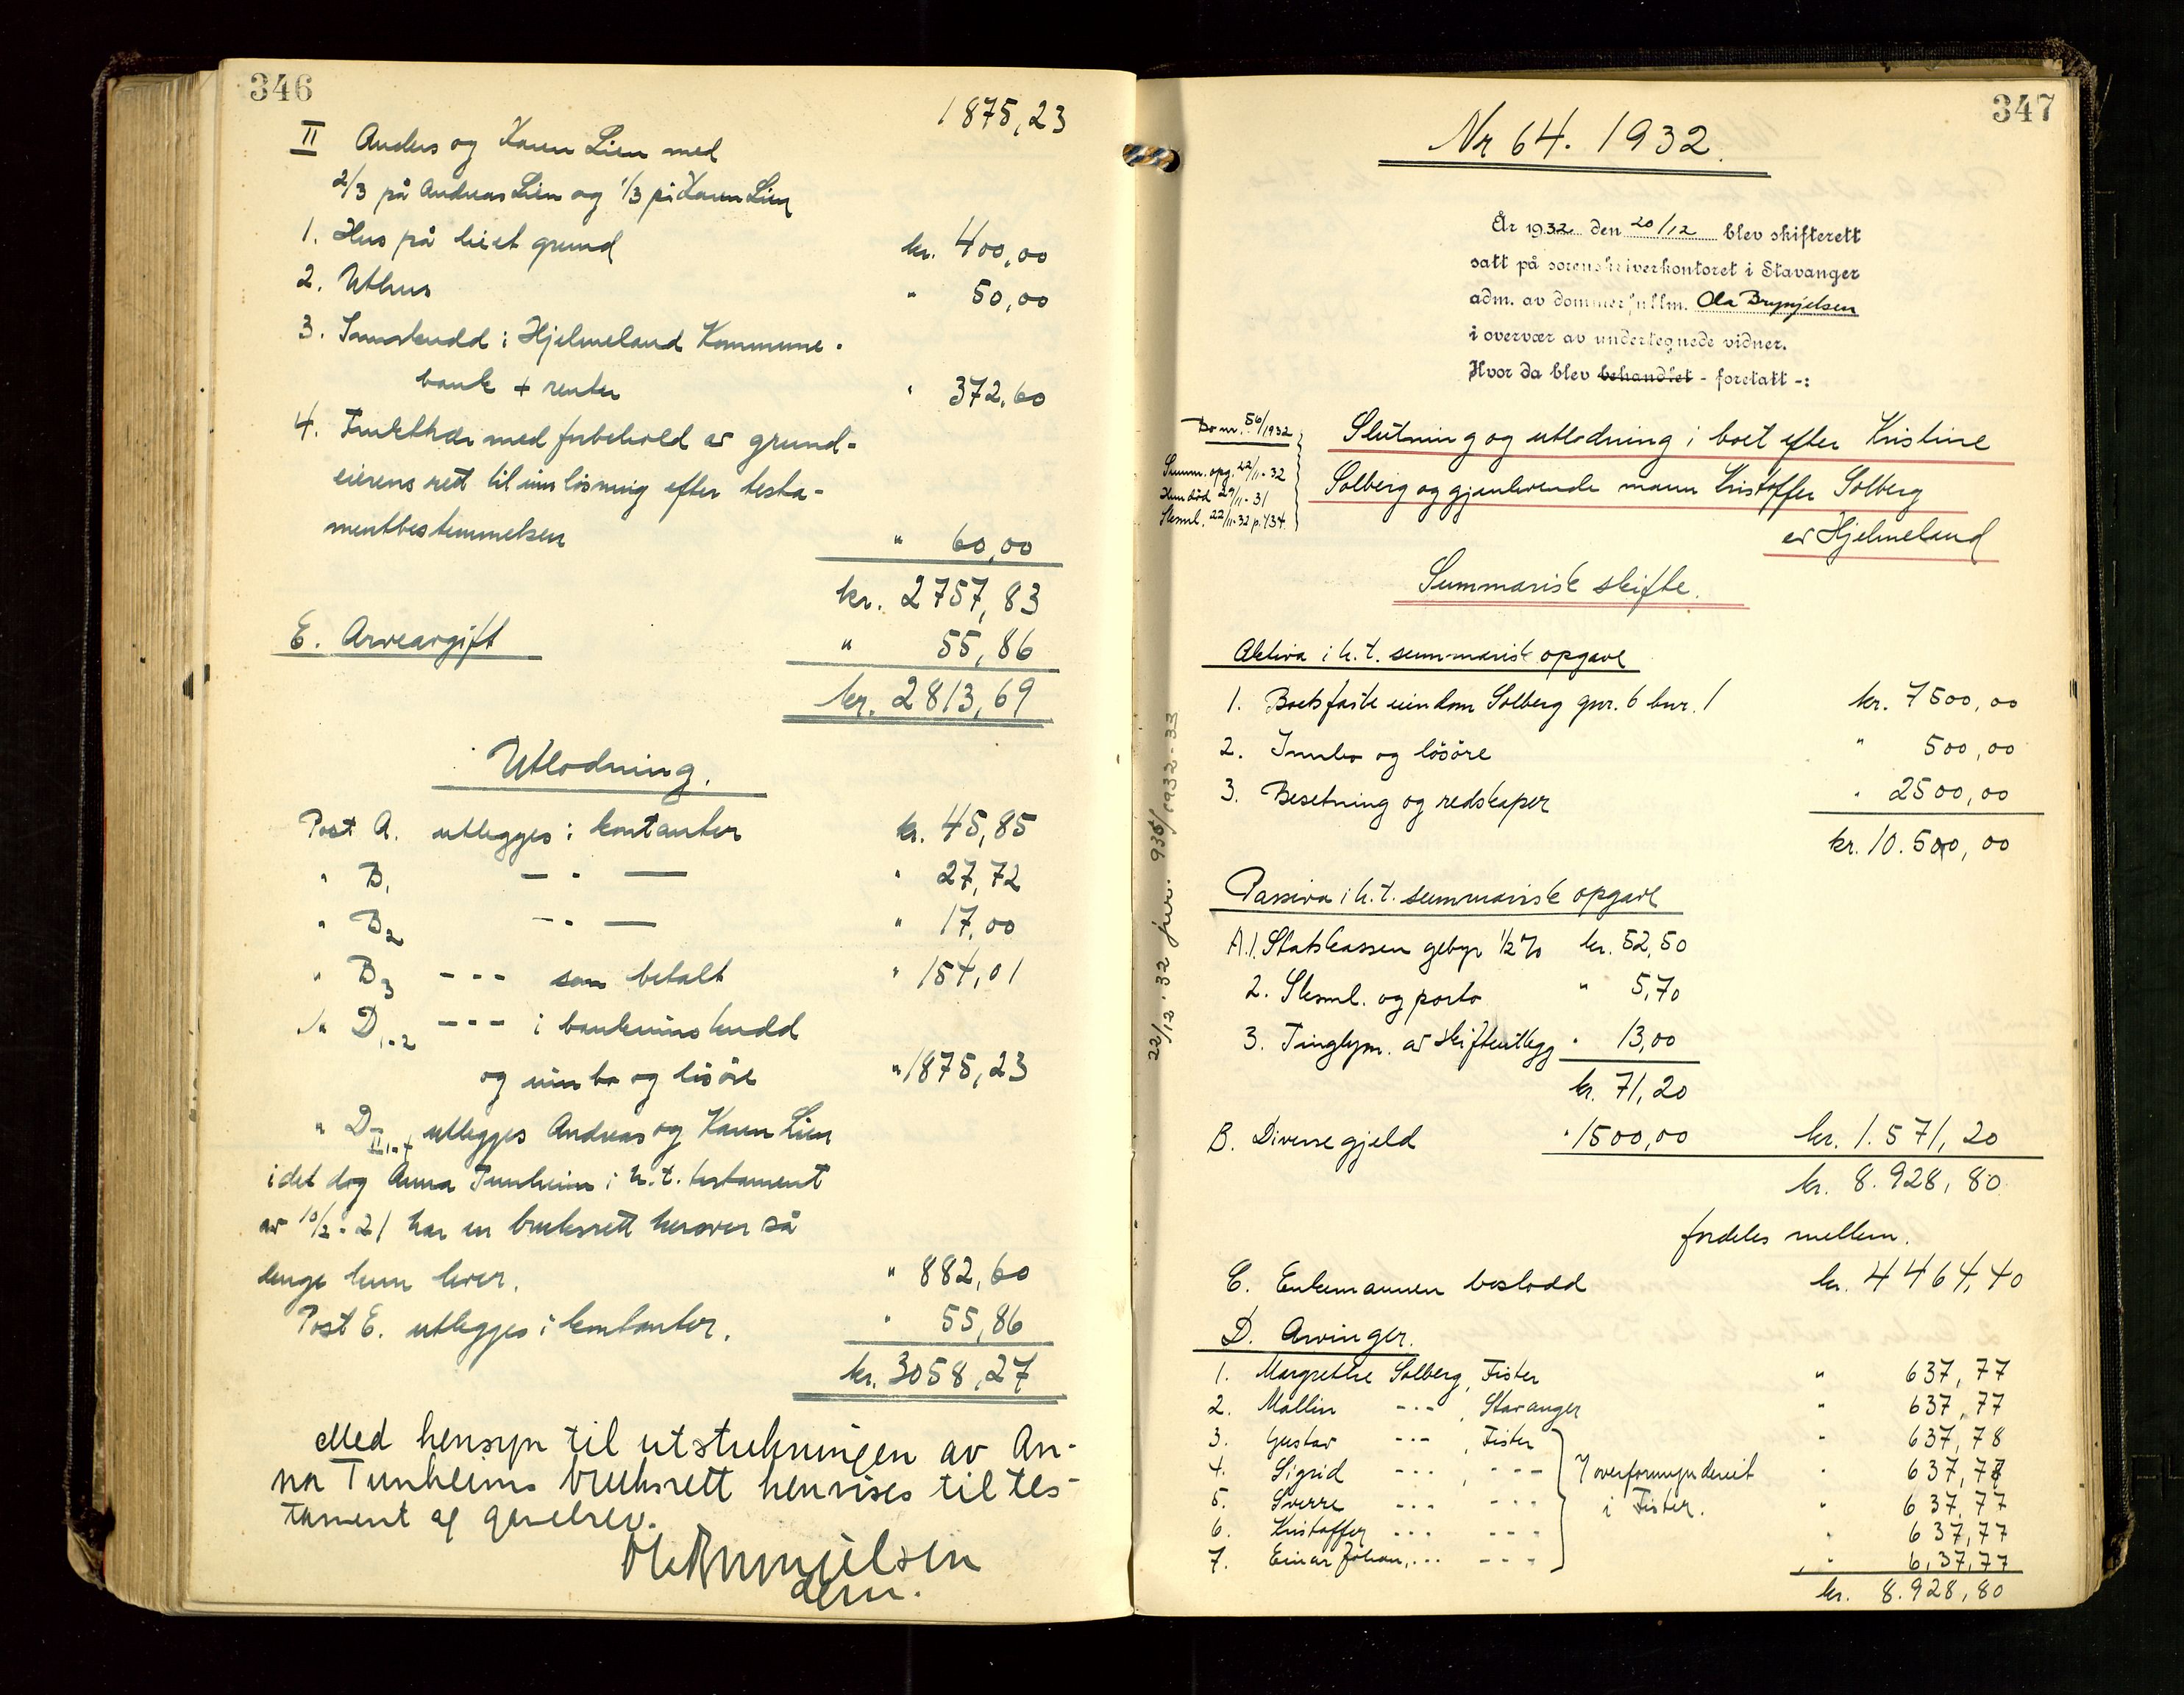 346
1875,23
II Anders og Karen Lien med
2/3 på Andreas Lien og 1/3 på Karen Lien
1. Hus på leiet grund kr. 400,00
2. Uthus " 50,00
3. Innskudd i Hjelmeland Kommune-
bank + renter " 372,60
4. Frukthave med forbehold av grund-
eierens rett til innløsning efter testa-
mentbestemmelsen " 60,00
kr. 2757,83
E. Arveavgift " 55,86
kr. 2813,69
Utlodning.
Post A. utlegges i kontanter kr. 45,85
" B1 — " — " 27,72
" B2 - - — " 17,00
" B3 --- som betalt " 154,01
" D1-2 --- i bankinnskudd
og innbo og løsøre " 1875,23
" D II 1-4 utlegges Andreas og Karen Lien
idet dog Anna Tunheim i h.t. testament
av 10/2-21 har en bruksrett herover så
lenge hun lever. " 882,60
Post E. utlegges i kontanter. " 55,86
kr. 3058,27
Med hensyn til utstrekningen av An-
na Tunheims bruksrett henvises til tes-
tament og gavebrev.
Ola Brynjelsen
dfm.
347
Nr 64. 1932.
År 1932 den 20/12 blev skifterett
satt på sorenskriverkontoret i Stavanger
adm. av dommerfullm. Ola Brynjelsen
i overvær av undertegnede vidner.
Hvor da blev behandlet - foretatt -:
Bo nr. 56/1932
Summ. opg. 22/11-32
Hun død 29/11-31
Sksml. 22/11-32 p. 434.
Slutning og utlodning i boet efter Kristine
Solberg og gjenlevende mann Kristoffer Solberg
av Hjelmeland
Summarisk skifte.
Aktiva i h.t. summarisk opgave
1. Boets faste eiendom Solberg gnr. 6 bnr. 1 kr. 7500,00
2. Innbo og løsøre " 500,00
3. Besetning og redskaper " 2500,00
kr. 10.500,00
Passiva i h.t. summarisk opgave
A.1. Statskassen gebyr 1/2 % kr. 52,50
2. Sksml. og porto " 5,70
3. Tinglysn. av skifteutlegg " 13,00
kr. 71,20
B. Diverse gjeld " 1500,00 kr. 1.571,20
kr. 8.928,80
fordeles mellem.
C. Enkemannen boslodd kr. 4464,40
D. Arvinger.
1. Margrethe Solberg, Fister " 637,77
2. Mallin -"-, Stavanger " 637,77
3. Gustav -"-, Fister " 637,78
4. Sigrid ---, --- " 637,78
5. Sverre --- --- " 637,77
6. Kristoffer --- --- " 637,77
7. Einar Johan, --- --- " 637,77
I overformynderiet
i Fister.
kr. 8.928,80
22/12 '32 jnr. 935/1932-33